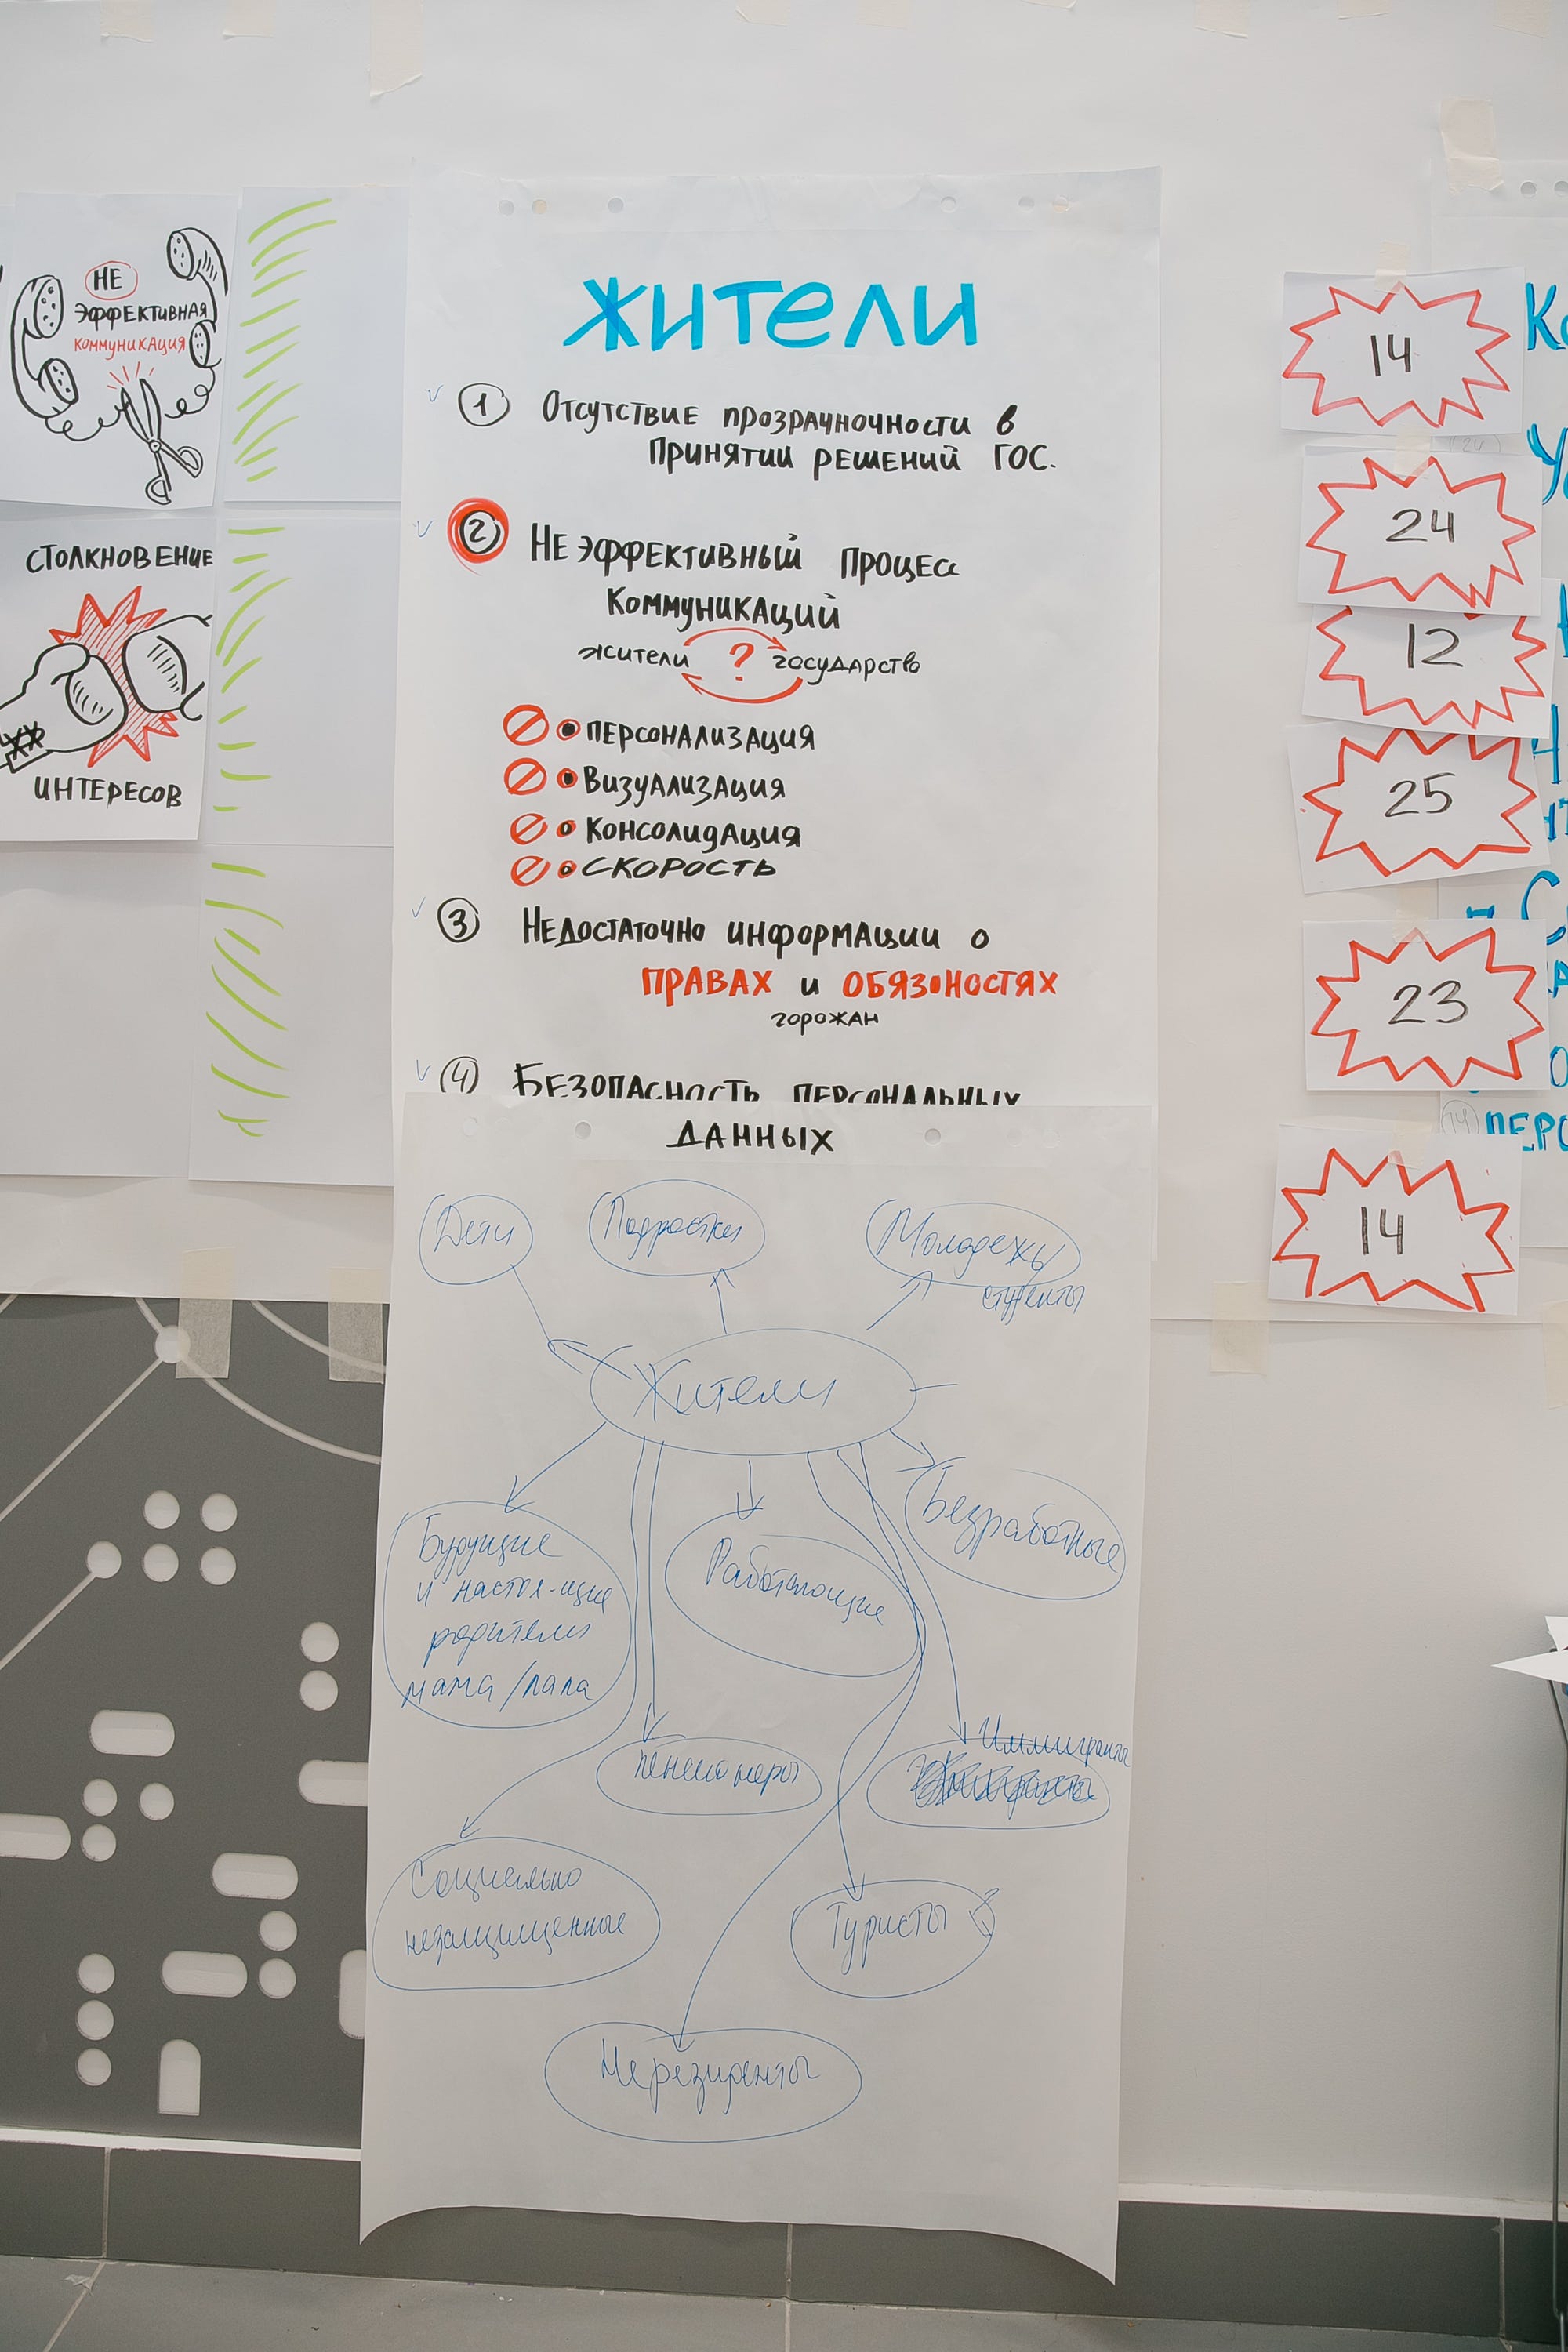 НЕ
ЭФФЕКТИВНАЯ
КОММУНИКАЦИЯ
СТОЛКНОВЕНИЕ
ИНТЕРЕСОВ
ЖИТЕЛИ
1 ОТСУТСТВИЕ ПРОЗРАЧНОЧНОСТИ В
ПРИНЯТИИ РЕШЕНИЙ ГОС.
2 НЕ ЭФФЕКТИВНЫЙ ПРОЦЕСС
КОММУНИКАЦИЙ
жители ? государство
ПЕРСОНАЛИЗАЦИЯ
ВИЗУАЛИЗАЦИЯ
КОНСОЛИДАЦИЯ
СКОРОСТЬ
3 НЕДОСТАТОЧНО ИНФОРМАЦИИ О
ПРАВАХ И ОБЯЗОНОСТЯХ
горожан
(4) БЕЗОПАСНОСТЬ ПЕРСОНАЛЬНЫХ
ДАННЫХ
Дети
Подростки
Молодежь
студенты
Жители
Будущие
и настоя-щие
родители
мама/папа
Работающие
Безработные
пенсионеры
Иммигранты
Социально
незащищенные
Туристы
Нерезиденты
14
24
12
25
23
14